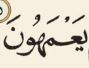 يَعْمَهُونَ